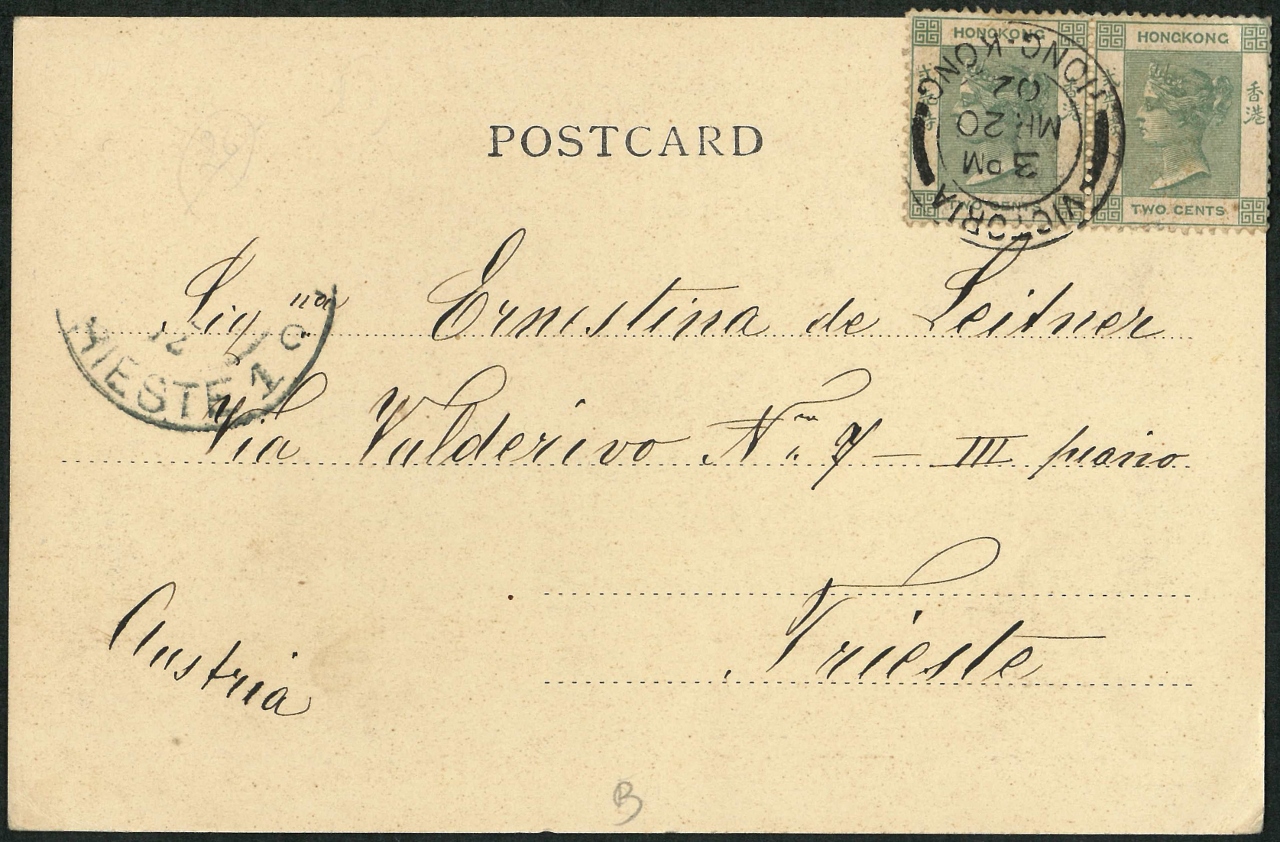 HONGKONG HONGKONG
香港 香港
VICTORIA HONG-KONG
3 PM
MR 20
02
TWO CENTS TWO CENTS
POSTCARD
Sig.na Ernestina de Leitner
Via Valderivo No. 7 – III piano
Trieste
Austria
TRIESTE 1 C
B